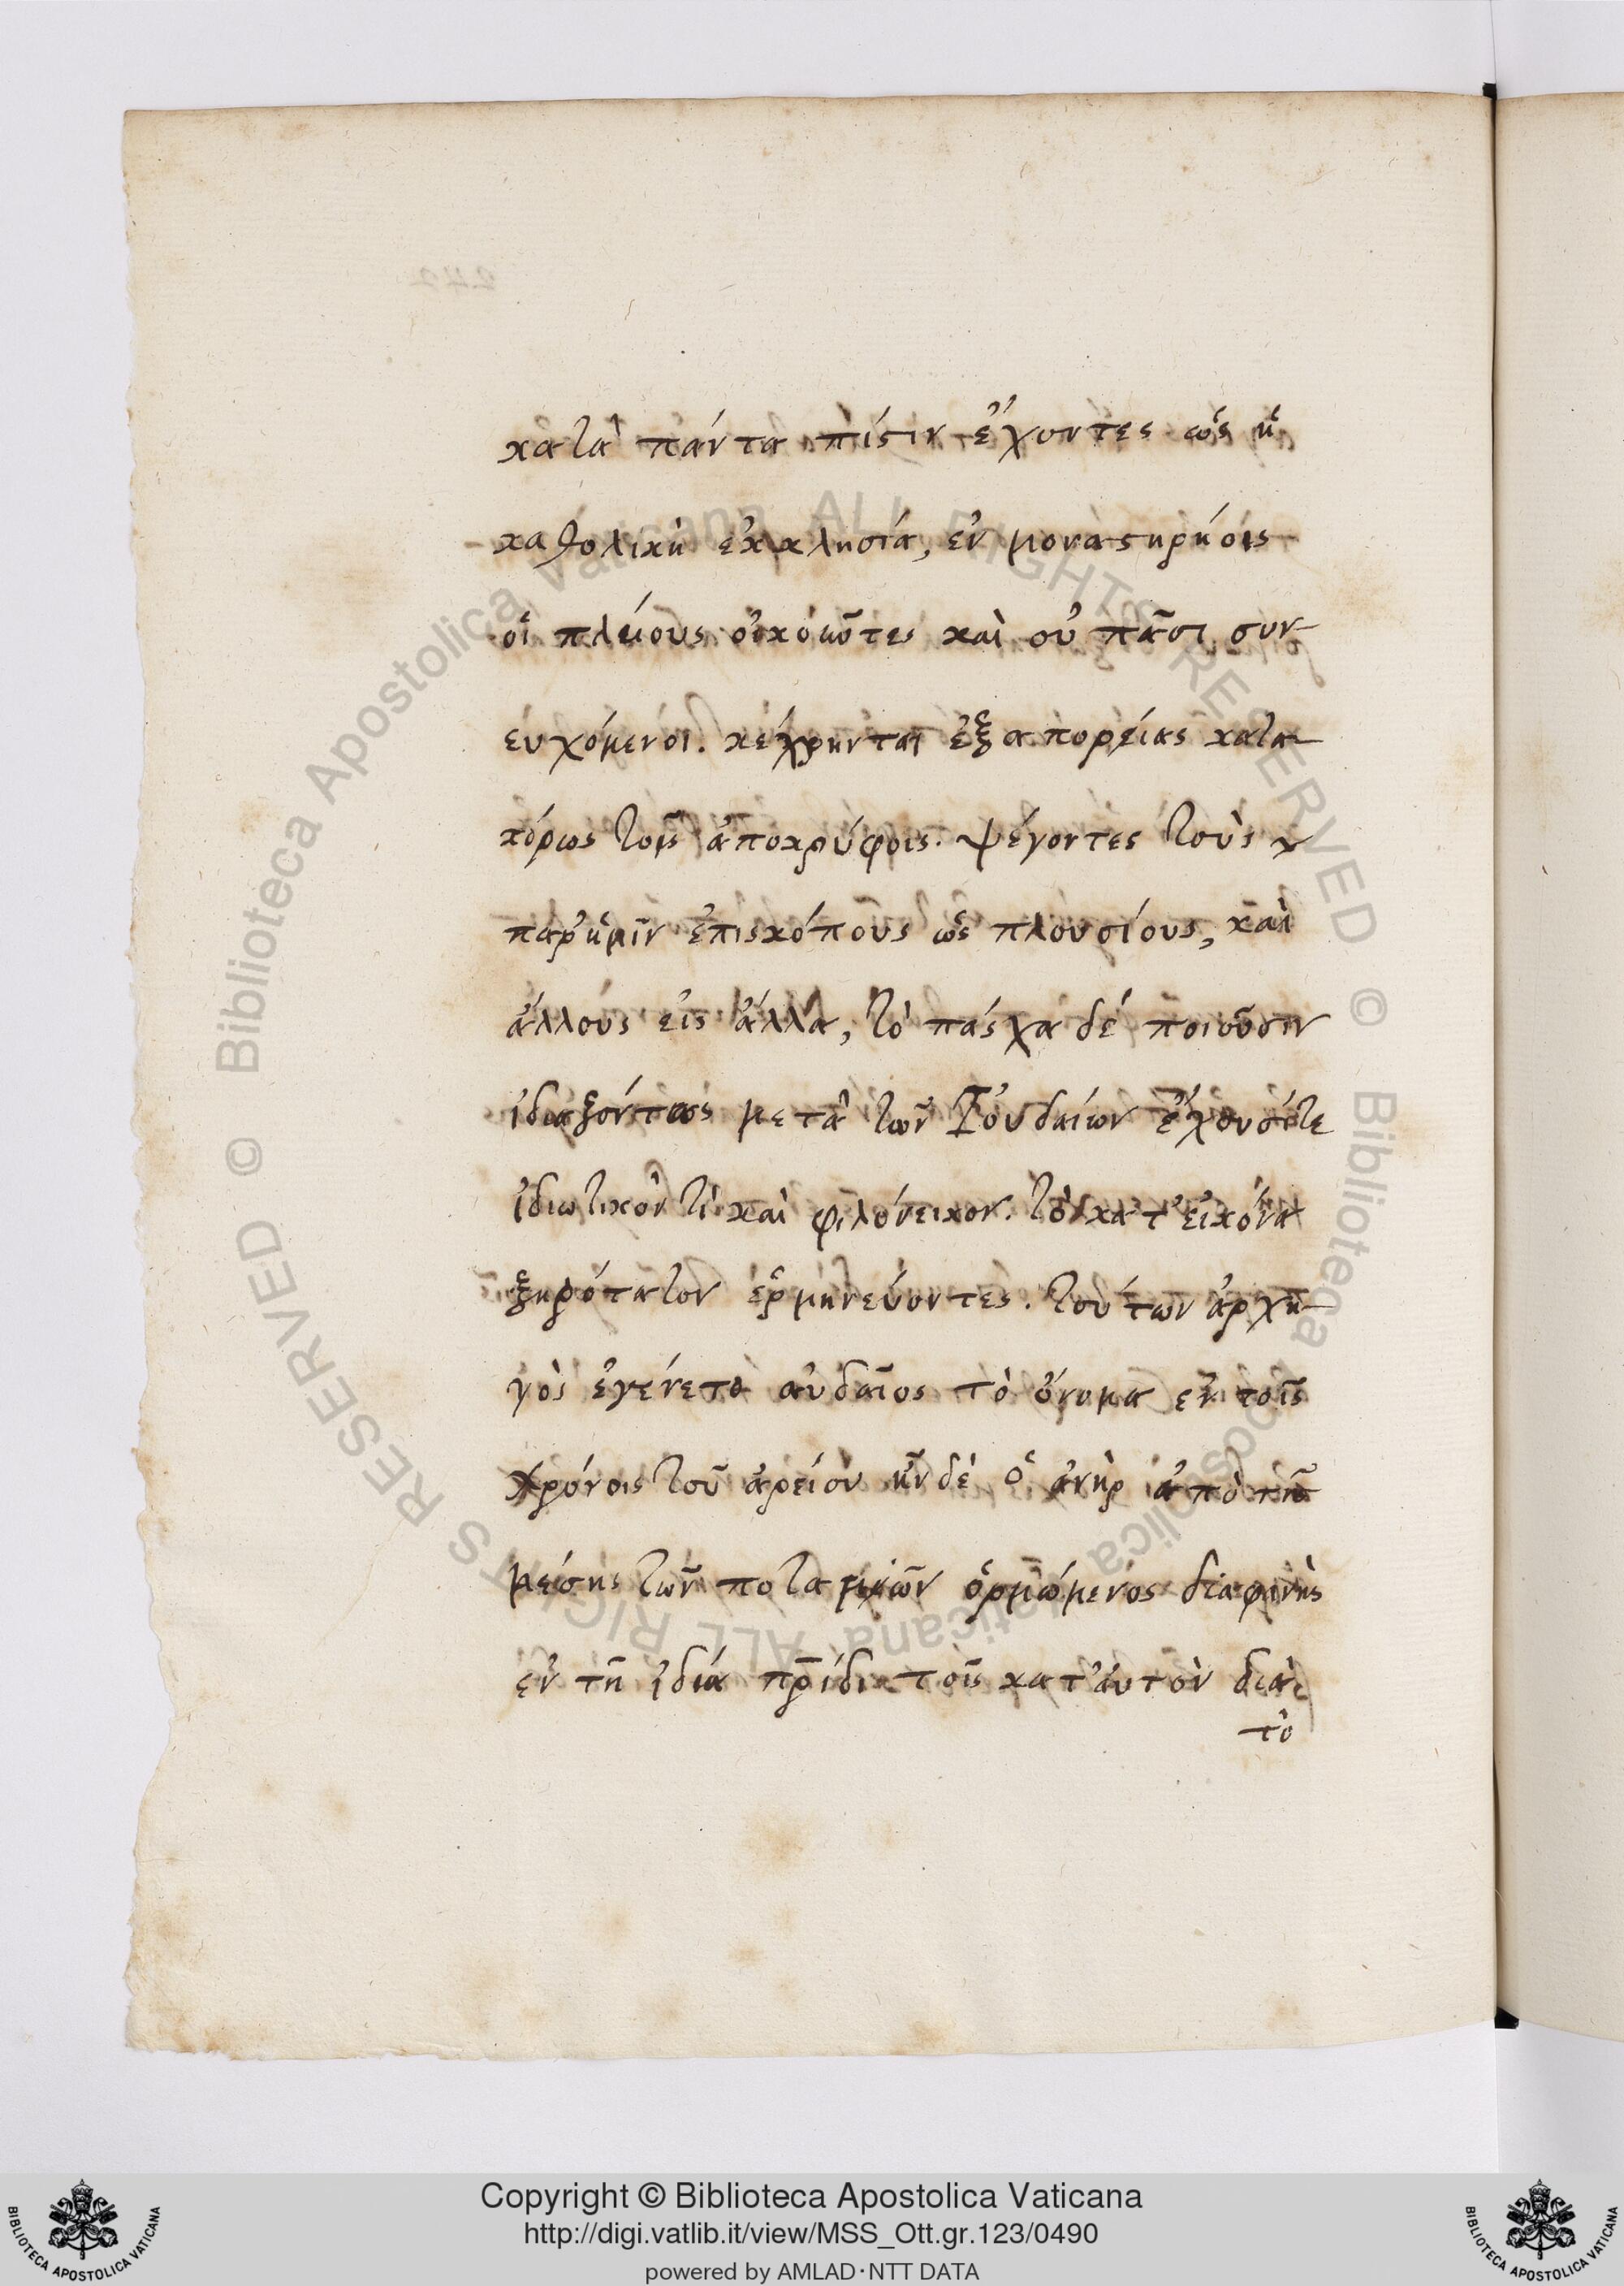 κατὰ πάντα πίστιν ἔχοντες ὡς ἡ
καθολικὴ ἐκκλησία, ἐν μοναστηρήοις
οἱ πλείους οἰκοιῶτες καὶ οὐ πᾶσι συν-
ευχόμενοι. κέχρηνται ἐξ ἀπορείας κατα-
κόρως τοῖς ἀποκρύφοις. ψέγοντες τοὺς
παρ' ἡμῖν ἐπισκόπους ὡς πλουσίους, καὶ
ἄλλους εἰς ἄλλα, τὸ πάσχα δὲ ποιοῦσιν
ἰδιαζόντως μετὰ τῶν Ἰουδαίων ἔχουσί τε
ἰδιωτικόν τι καὶ φιλόνεικον. τὸ κατ' εἰκόνα
ξηρότατον ἑρμηνεύοντες. τούτων ἀρχη-
γὸς ἐγένετο αὐδαῖος τὸ ὄνομα ἐν τοῖς
χρόνοις τοῦ ἀρείου ἦν δὲ ὁ ἀνὴρ ἀπὸ τῆς
μέσης τῶν ποταμῶν ὁρμώμενος διαφανὴς
ἐν τῇ ἰδίᾳ πρ̅ίδι τοῖς κατ' αὐτὸν διὰ
τὸ
Copyright © Biblioteca Apostolica Vaticana
http://digi.vatlib.it/view/MSS_Ott.gr.123/0490
powered by AMLAD·NTT DATA
BIBLIOTECA APOSTOLICA VATICANA
BIBLIOTECA APOSTOLICA VATICANA
© Biblioteca Apostolica Vaticana ALL RIGHTS RESERVED © Biblioteca Apostolica Vaticana ALL RIGHTS RESERVED